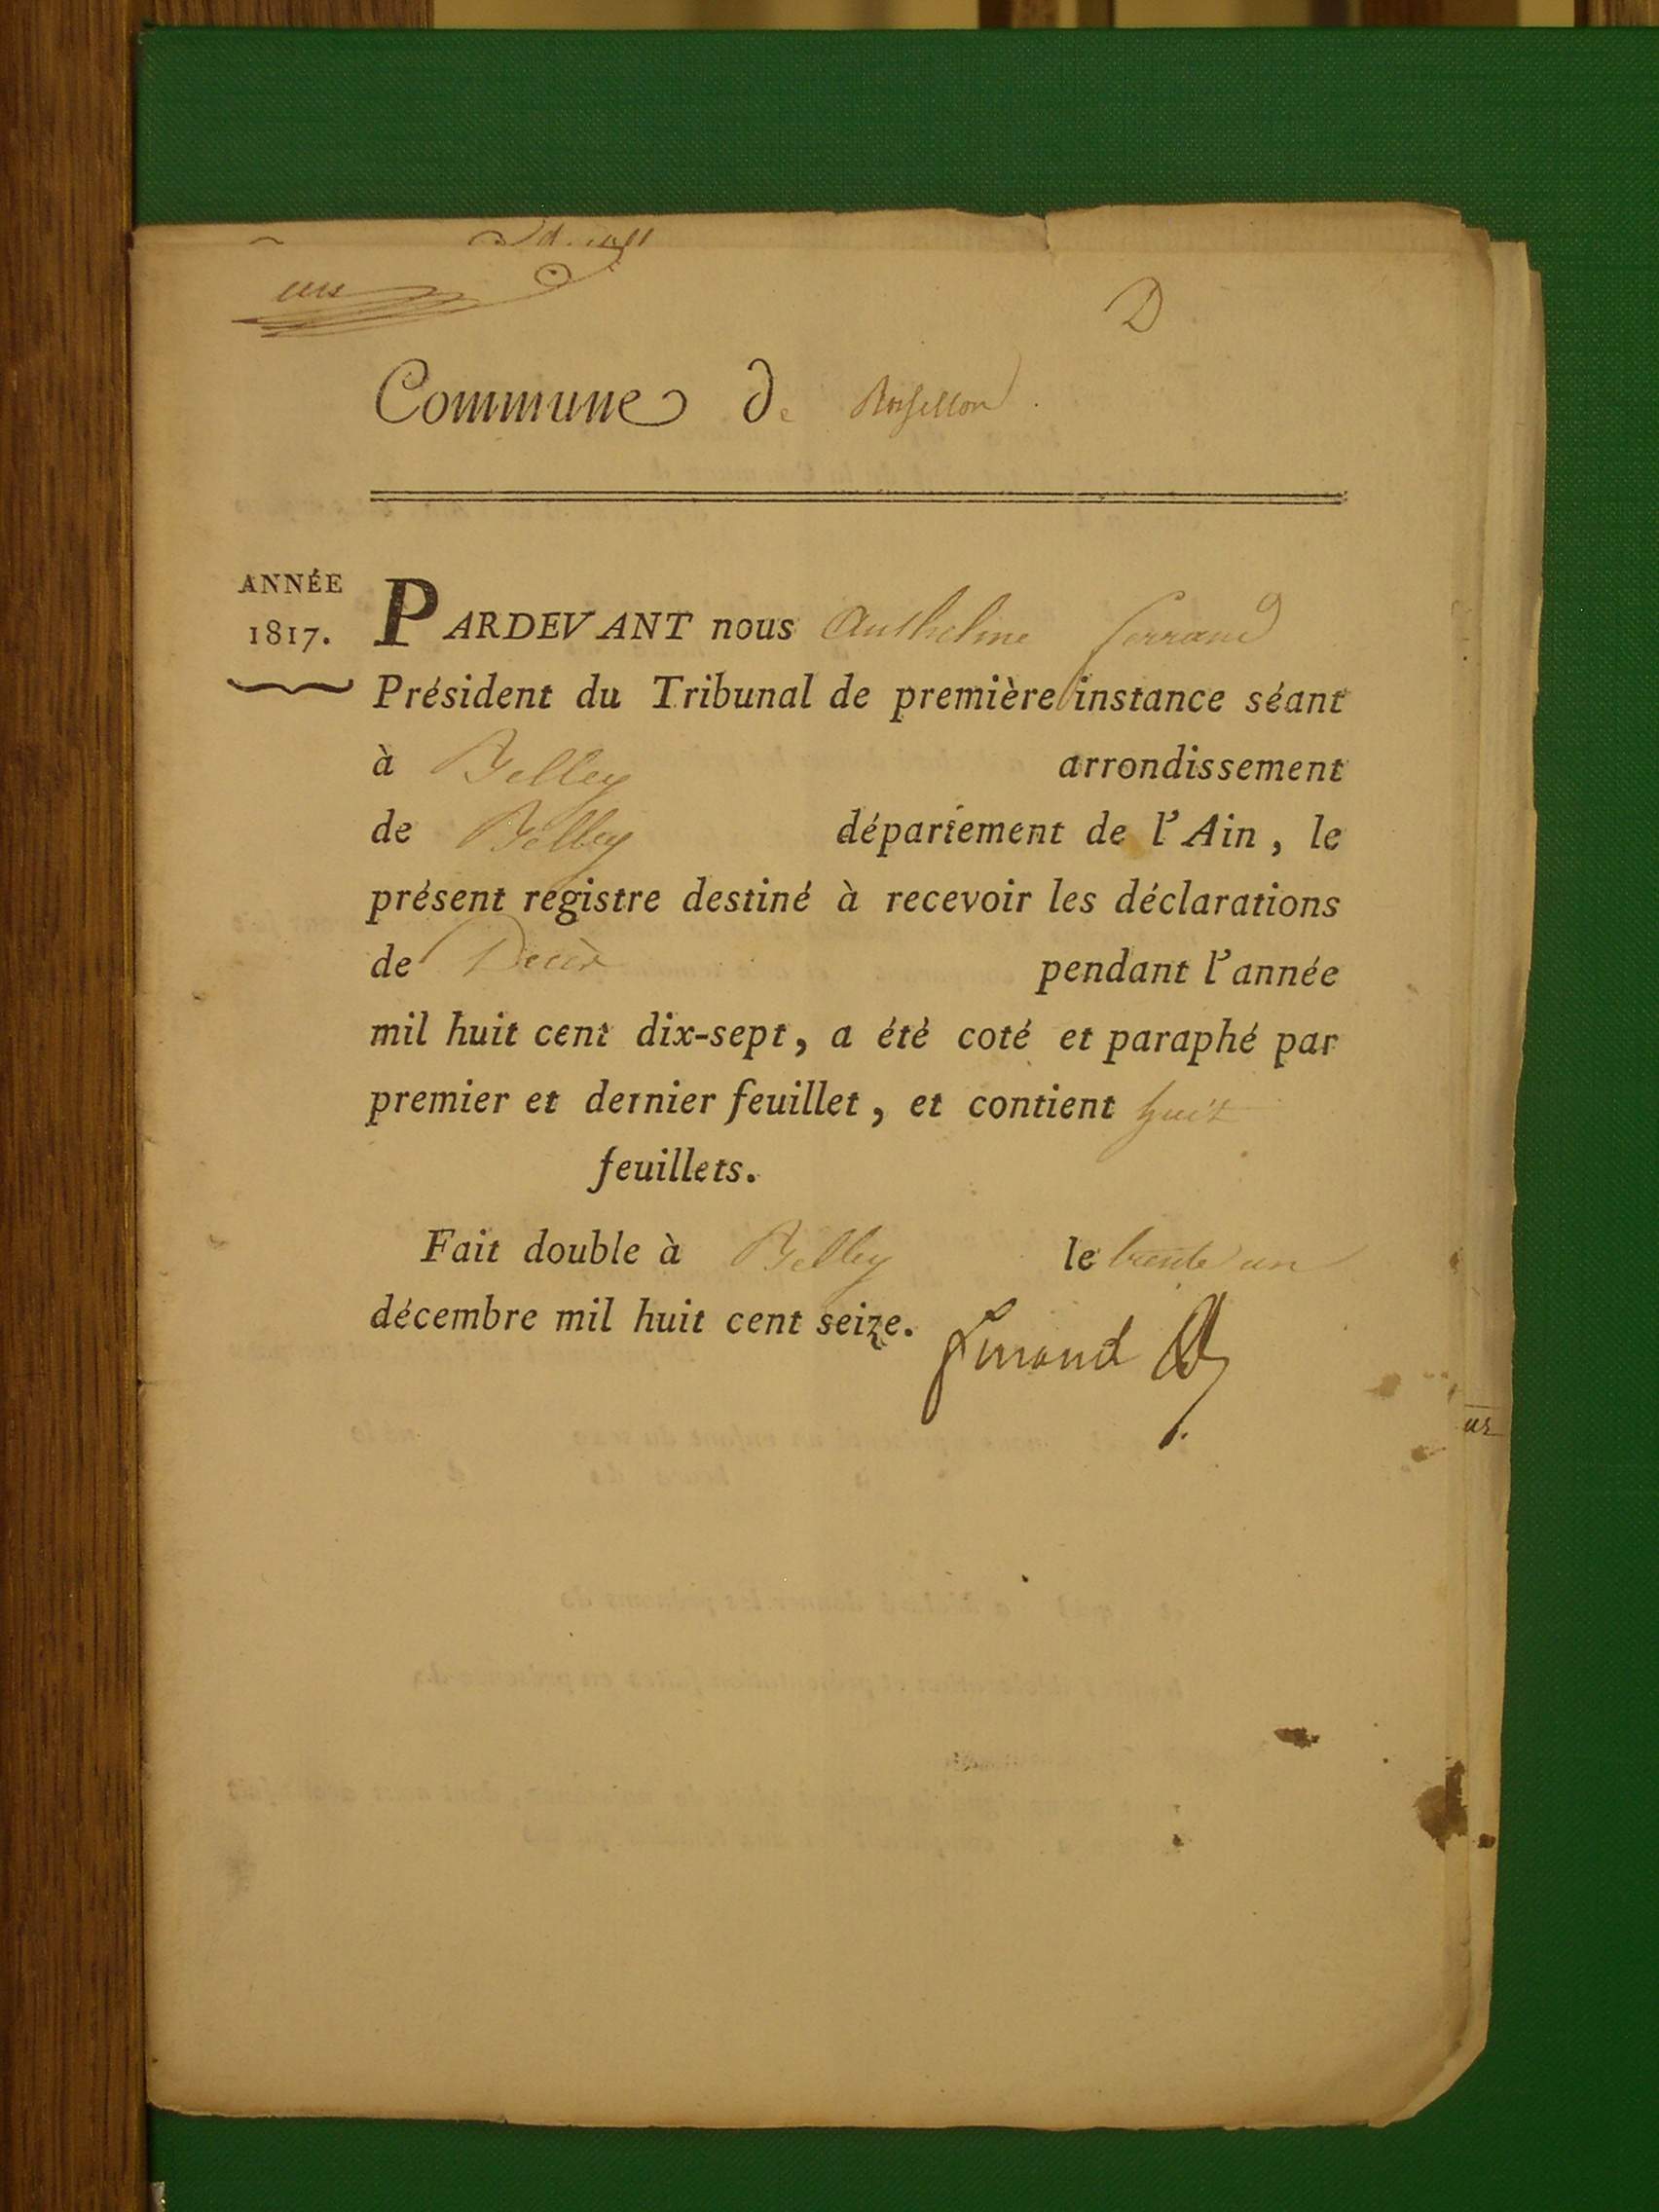 D
Commune de Rossillon.
ANNÉE
1817.
PARDEVANT nous Anthelme ferrand
Président du Tribunal de première instance séant
à Belley arrondissement
de Belley département de l'Ain, le
présent registre destiné à recevoir les déclarations
de Décès pendant l'année
mil huit cent dix-sept, a été coté et paraphé par
premier et dernier feuillet, et contient huit
feuillets.
Fait double à Belley le trente un
décembre mil huit cent seize.
ferrand